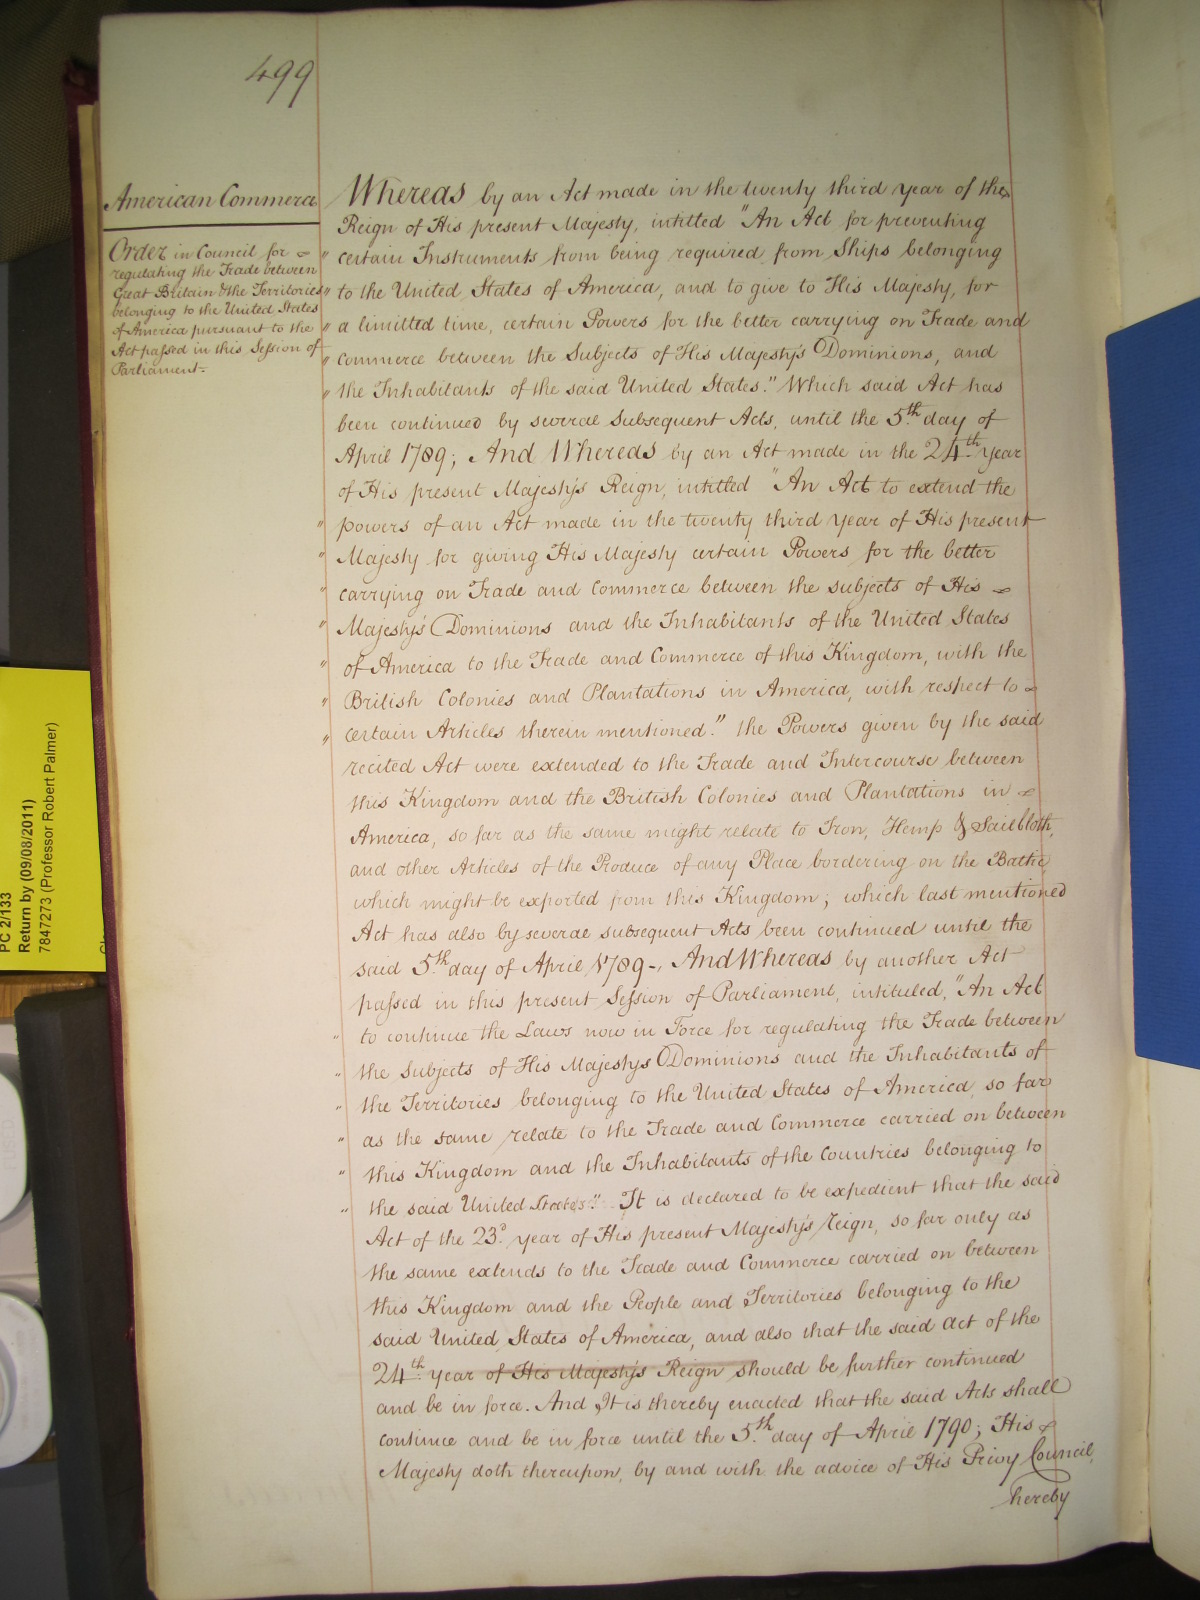 499
American Commerce
Order in Council for
regulating the Trade between
Great Britain & the Territories
belonging to the United States
of America pursuant to the
Act passed in this Session of
Parliament.
Whereas by an Act made in the twenty third year of the
Reign of His present Majesty, intitled "An Act for preventing
" certain Instruments from being required from Ships belonging
" to the United States of America, and to give to His Majesty, for
" a limitted time, certain Powers for the better carrying on Trade and
" Commerce between the Subjects of His Majesty's Dominions, and
" the Inhabitants of the said United States." Which said Act has
been continued by several subsequent Acts, until the 5th day of
April 1789; And Whereas by an Act made in the 24th year
of His present Majesty's Reign, intitled "An Act to extend the
" powers of an Act made in the twenty third year of His present
" Majesty for giving His Majesty certain Powers for the better
" carrying on Trade and Commerce between the subjects of His
" Majesty's Dominions and the Inhabitants of the United States
" of America to the Trade and Commerce of this Kingdom, with the
" British Colonies and Plantations in America, with respect to
" certain Articles therein mentioned." the Powers given by the said
recited Act were extended to the Trade and Intercourse between
this Kingdom and the British Colonies and Plantations in
America, so far as the same might relate to Iron, Hemp & Sailcloth,
and other Articles of the Produce of any Place bordering on the Baltic
which might be exported from this Kingdom; which last mentioned
Act has also by several subsequent Acts been continued until the
said 5th day of April 1789-, And Whereas by another Act
passed in this present Session of Parliament, intituled, "An Act
" to continue the Laws now in Force for regulating the Trade between
" the subjects of His Majestys Dominions and the Inhabitants of
" the Territories belonging to the United States of America, so far
" as the same relate to the Trade and Commerce carried on between
" this Kingdom and the Inhabitants of the Countries belonging to
" the said United States." It is declared to be expedient that the said
Act of the 23d year of His present Majesty's Reign, so far only as
the same extends to the Trade and Commerce carried on between
this Kingdom and the People and Territories belonging to the
said United States of America, and also that the said Act of the
24th year of His Majesty's Reign should be further continued
and be in force. And It is thereby enacted that the said Acts shall
continue and be in force until the 5th day of April 1790; His
Majesty doth thereupon, by and with the advice of His Privy Council,
hereby
PC 2/133
Return by (09/08/2011)
7847273 (Professor Robert Palmer)